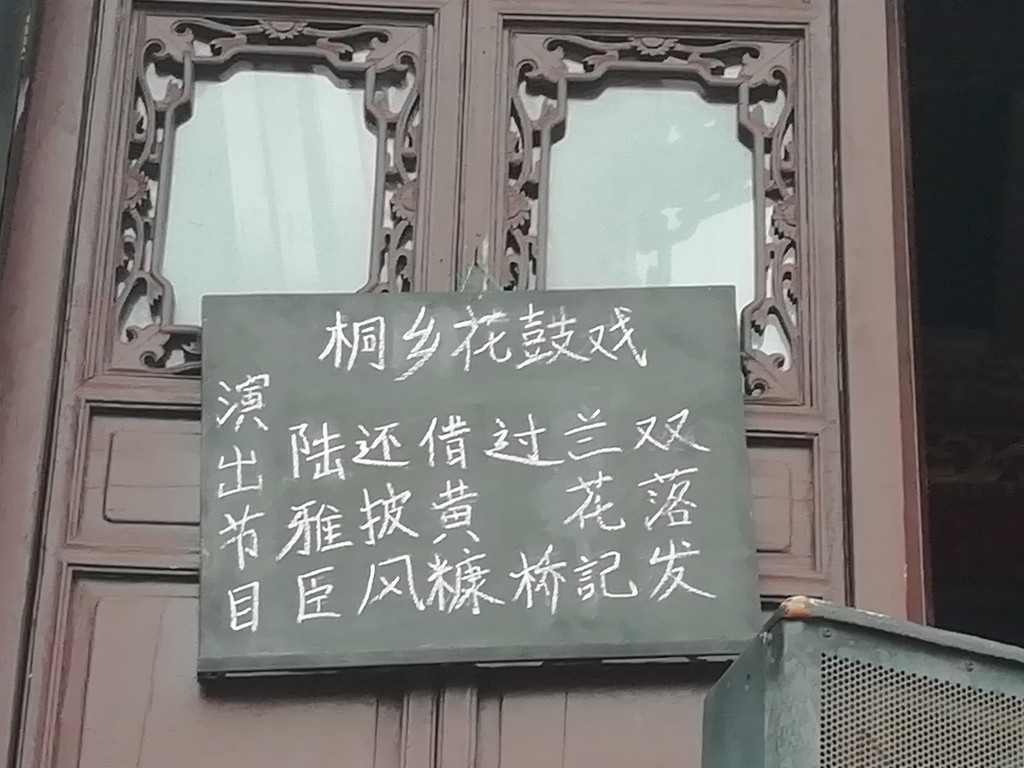 桐乡花鼓戏
演出节目
陆雅臣
还披风
借黄糠
过桥
兰花記
双落发